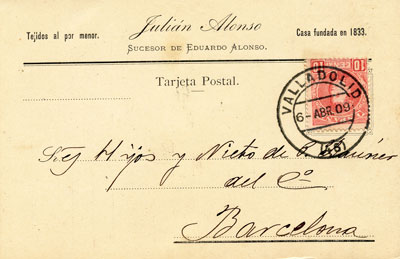 Julián Alonso
Tejidos al por menor.
Casa fundada en 1833.
SUCESOR DE EDUARDO ALONSO.
Tarjeta Postal.
10 10
VALLADOLID
6-ABR.09
Hijos y Nieto de
del Cº
Barcelona